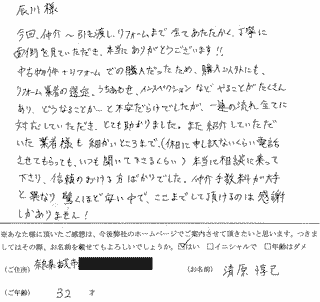 辰川 様
今回、仲介〜引き渡し、リフォームまで全てあたたかく、丁寧に
面倒を見ていただき、本当にありがとうございます!!
中古物件+リフォームでの購入だったため、購入以外にも、
リフォーム業者の選定、うちあわせ、インスペクションなどやることがたくさん
あり、どうなることか…と不安だらけでしたが、一連の流れ全てに
対応していただき、とても助かりました。また紹介していただ
いた業者様も細かいところまで、(逆に申し訳ないくらい電話
させてもらっても、いつも聞いて下さるくらい)本当に相談に乗って
下さり、信頼のおける方ばかりでした。仲介手数料が大手
と異なり驚くほど安い中で、ここまでして頂けるのは感謝
しかありません!
※あなた様に頂いたご感想は、今後弊社のホームページでご案内させて頂きたいと思います。つきま
してはその際、お名前を載せてもよろしいでしょうか。☑はい □イニシャルで □年齢はダメ
(ご住所) 奈良県 (お名前) 清原 惇己
(ご年齢) 32 才